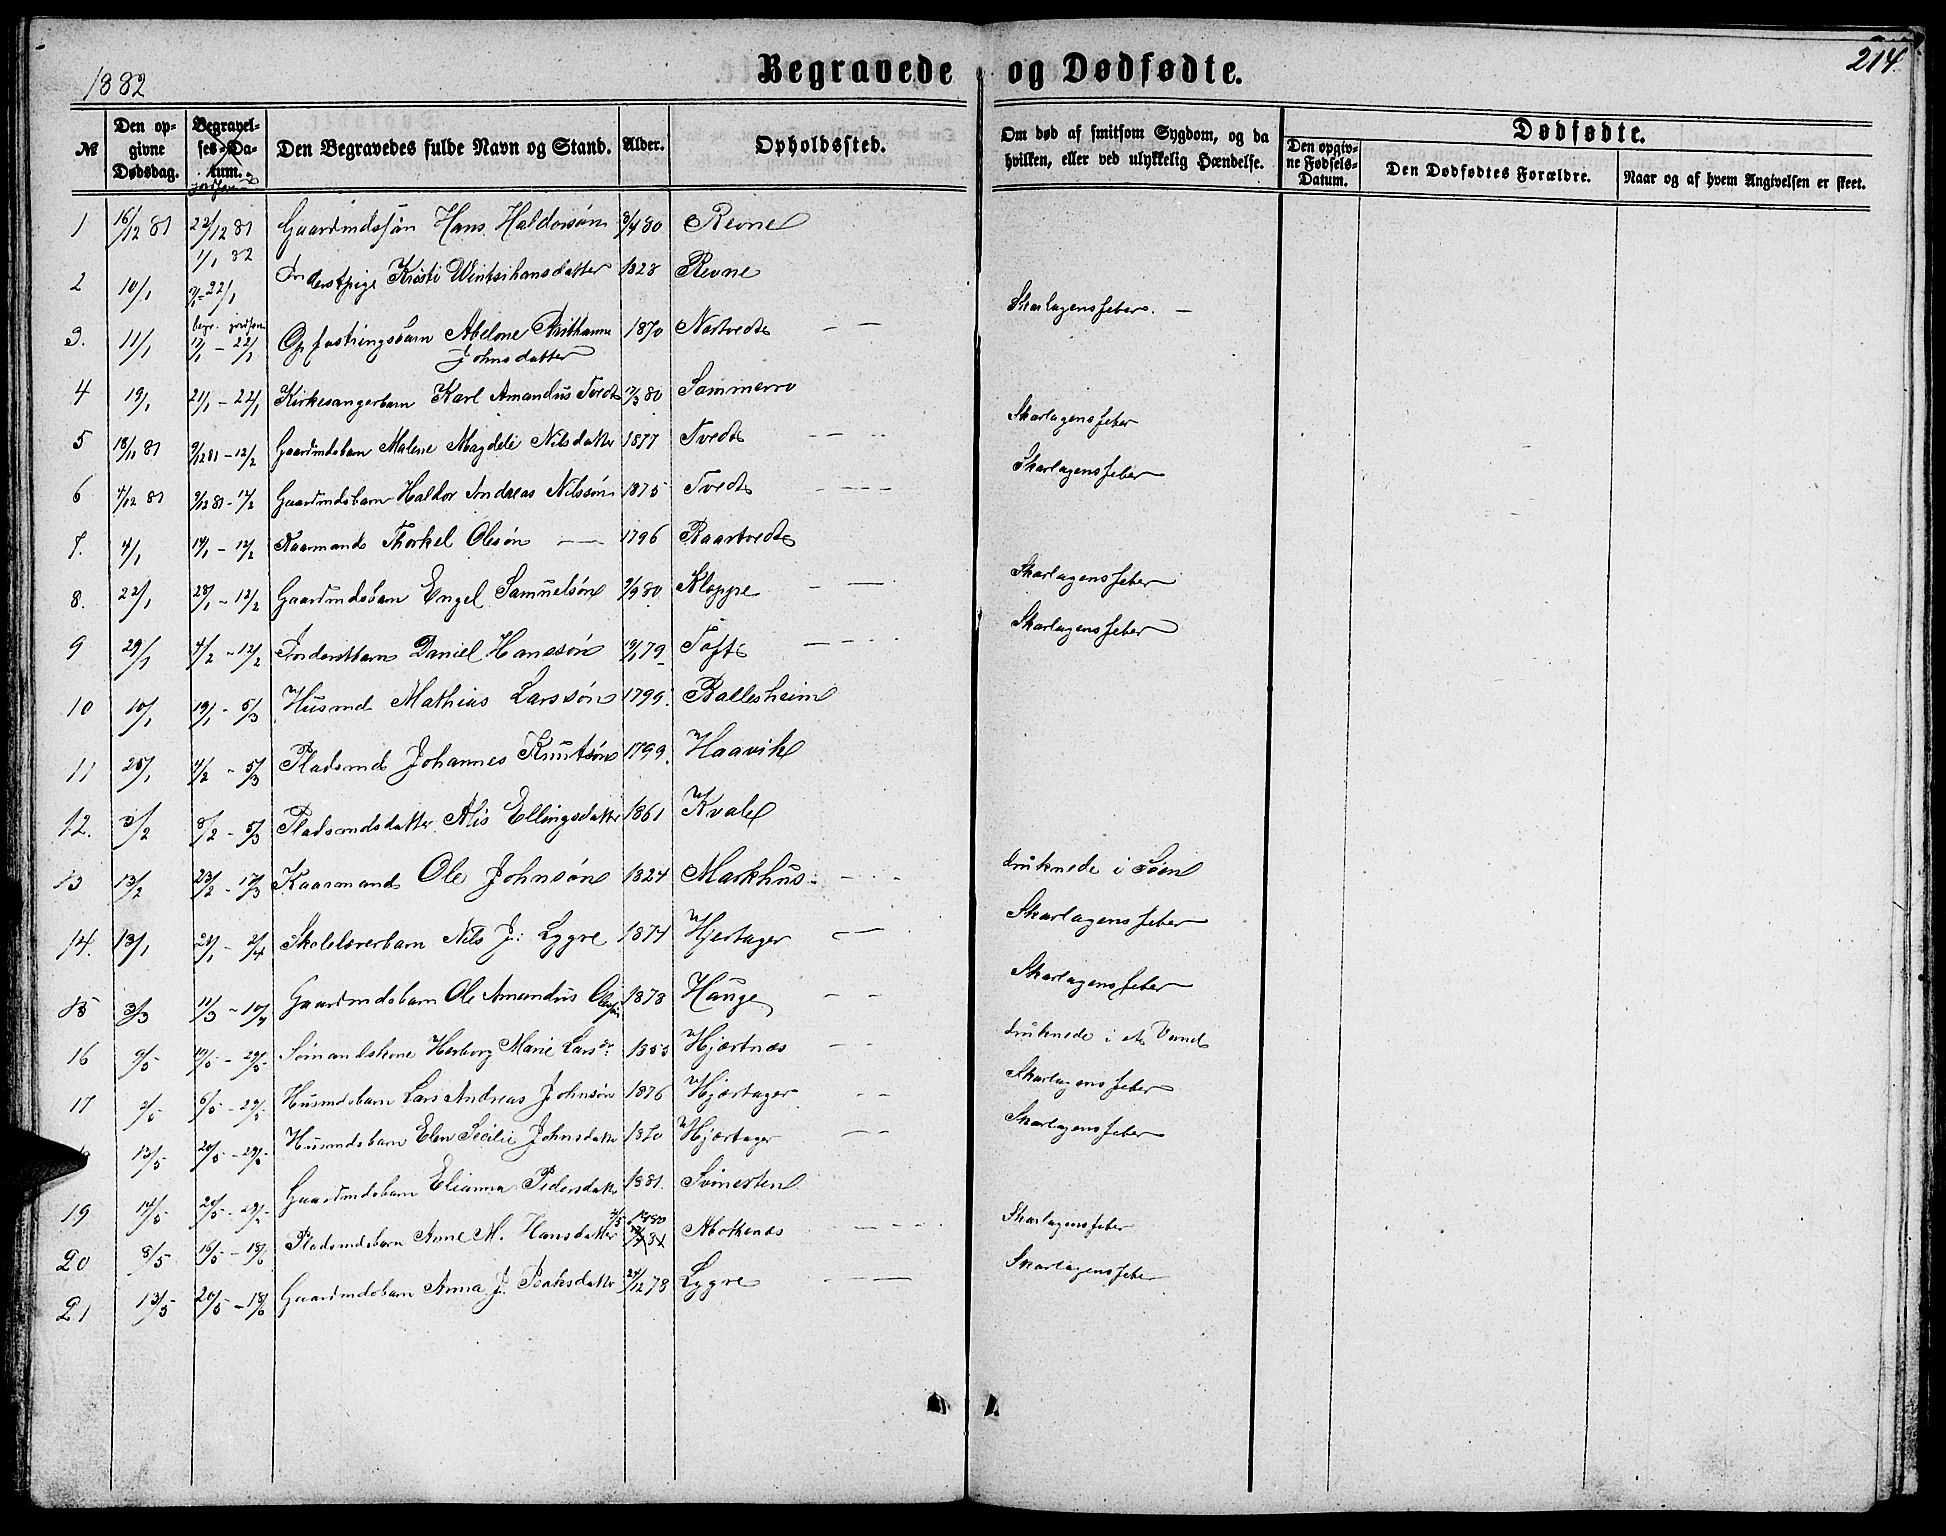 1882
Begravede og Dødfødte.
214
№
Den opgivne Dødsdag.
Begravelses-Datum.
Den Begravedes fulde Navn og Stand.
Alder.
Opholdssted.
Om død af smitsom Sygdom, og da hvilken, eller ved ulykkelig Hændelse.
Dødfødte.
Den opgivne Fødsels-Datum.
Den Dødfødtes Forældre.
Naar og af hvem Angivelsen er skeet.
1 16/12 81 22/12 81 1/1 82 Gaardmdssøn Hans Haldorsøn 3/4 80 Revne
2 10/1 22/1 Inderstpige Kristi 1828 Revne
3. 11/1 17/1 – 22/1 Opfostringsbarn Abelone Johnsdatter 1870 Nortvedt – — Skarlagensfeber. –
4 19/1 21/1 – 22/1 Kirkesangerbarn Karl Amandus Tvedt 17/3 80 Sommerro
5 18/11 81 9/12 81 – 12/2 Gaardmdsbarn Malene Magdele Nilsdatter 1877 Tvedt Skarlagensfeber
6 4/12 81 9/12 81 – 12/2 Gaardmdsbarn Haldor Andreas Nilssøn 1875 Tvedt Skarlagensfeber
7. 4/1 14/1 – 12/2 Kaarmand Thorkel Olesøn — 1796 Baartvedt
8. 22/1 28/1 – 12/2 Gaardmdsbarn Engel Samuelsøn 9/9 80 Kloppe – — Skarlagensfeber
9 29/1 4/2 – 12/2 Inderstbarn Daniel Hanssøn 79 Toft Skarlagensfeber
10 10/1 19/1 – 5/3 Husmd Mathias Larssøn 1799. Ballesheim
11 25/1 4/2 – 5/3 Pladsmd Johannes Knutsøn 1799. Haavik
12. 3/2 8/2 – 5/3 Pladsmdsdatter Alis Ellingsdatter 1861 Kvale
13 13/2 23/2 – 12/3 Kaarmand Ole Johnsøn 1824 Markhus druknede i Søen
14. 13/1 21/1 – 2/4 Skolelærerbarn Nils J: Lygre 1874 Hjertager Skarlagensfeber
15 3/3 11/3 – 10/4 Gaardmdsbarn Ole Amandus Olessøn 1878 Hauge – – Skarlagensfeber
16 9/5 19/5 – 29/5 Sømandskone Herborg Marie Larsdr 1853 Hjærtnæs druknede i et Vand
17 2/5 6/5 – 29/5 Husmdsbarn Lars Andreas Johnsøn 1876 Hjærtager Skarlagensfeber
13/5 20/5 – 29/5 Husmdsbarn Elen Secilie Johnsdatter 1870 Hjærtager Skarlagensfeber
19 14/5 20/5 – 29/5 Gaardmdsbarn Elianna Pedersdatter 1881. Svinesten
20 8/5 16/5 – 18/6 Pladsmdsbarn Anne M. Hansdatter 1880 Skarlagensfeber
21 13/5 20/5 – 18/6 Gaardmdsbarn Anna J. Isaksdatter 24/12 78 Lygre Skarlagensfeber